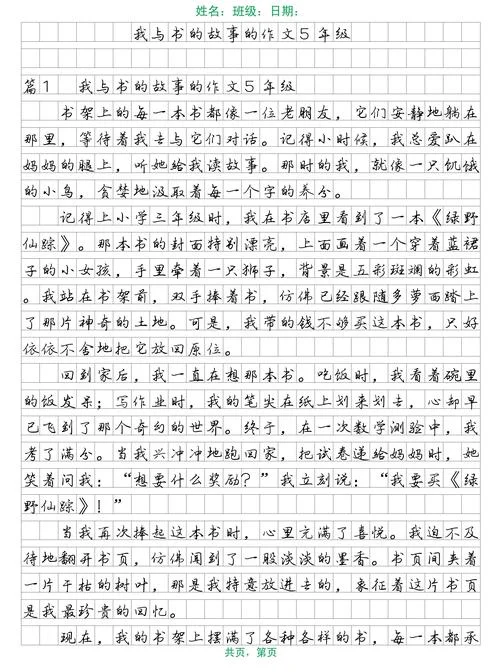 姓名：班级：日期：
我与书的故事的作文5年级
篇1 我与书的故事的作文5年级
书架上的每一本书都像一位老朋友，它们安静地躺在
那里，等待着我去与它们对话。记得小时候，我总爱趴在
妈妈的腿上，听她给我读故事。那时的我，就像一只饥饿
的小鸟，贪婪地汲取着每一个字的养分。
记得上小学三年级时，我在书店里看到了一本《绿野
仙踪》。那本书的封面特别漂亮，上面画着一个穿着蓝裙
子的小女孩，手里牵着一只狮子，背景是五彩斑斓的彩虹
。我站在书架前，双手捧着书，仿佛已经跟随多萝西踏上
了那片神奇的土地。可是，我带的钱不够买这本书，只好
依依不舍地把它放回原位。
回到家后，我一直在想那本书。吃饭时，我看着碗里
的饭发呆；写作业时，我的笔尖在纸上划来划去，心却早
已飞到了那个奇幻的世界。终于，在一次数学测验中，我
考了满分。当我兴冲冲地跑回家，把试卷递给妈妈时，她
笑着问我：“想要什么奖励？”我立刻说：“我要买《绿
野仙踪》！”
当我再次捧起这本书时，心里充满了喜悦。我迫不及
待地翻开书页，仿佛闻到了一股淡淡的墨香。书页间夹着
一片干枯的树叶，那是我特意放进去的，象征着这片书页
是我最珍贵的回忆。
现在，我的书架上摆满了各种各样的书，每一本都承
共页，第页